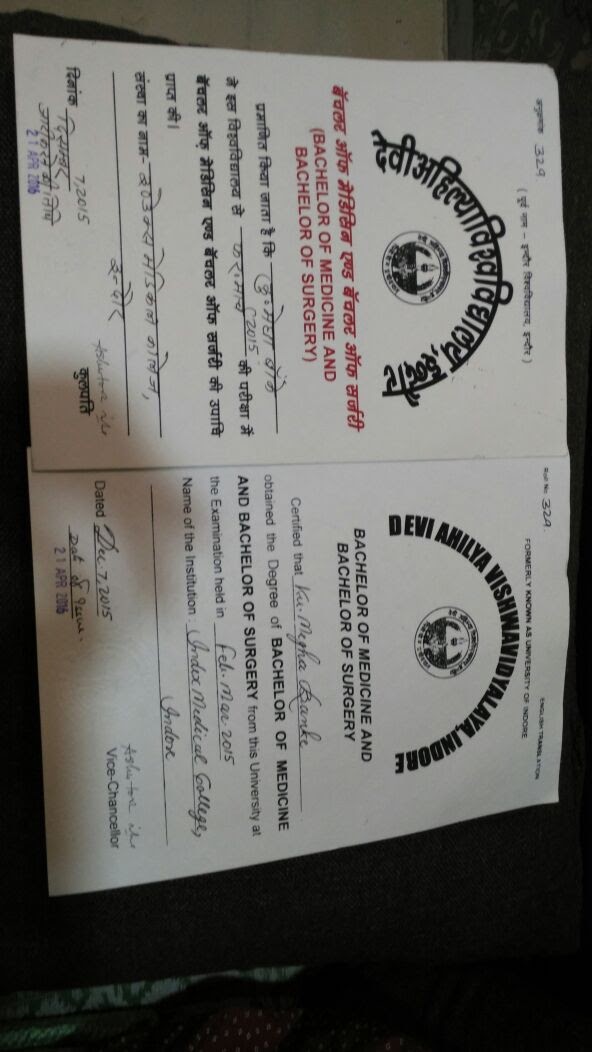 अनुक्रमांक 329
( पूर्व नाम - इन्दौर विश्वविद्यालय, इन्दौर )
देवी अहिल्या विश्वविद्यालय, इन्दौर
बॅचलर ऑफ मेडिसिन एण्ड बॅचलर ऑफ सर्जरी
(BACHELOR OF MEDICINE AND
BACHELOR OF SURGERY)
प्रमाणित किया जाता है कि कु. मेघा
ने इस विश्वविद्यालय से फर. मार्च 2015 की परीक्षा में
बॅचलर ऑफ मेडिसिन एण्ड बॅचलर ऑफ सर्जरी की उपाधि
प्राप्त की।
संस्था का नाम- इण्डेक्स मेडिकल कॉलेज,
इन्दौर
दिनांक दिसम्बर 7, 2015
21 APR 2016
कुलपति
Roll No. 329.
ENGLISH TRANSLATION
FORMERLY KNOWN AS UNIVERSITY OF INDORE
DEVI AHILYA VISHWAVIDYALAYA, INDORE
BACHELOR OF MEDICINE AND
BACHELOR OF SURGERY
Certified that Ku. Megha Banke
obtained the Degree of BACHELOR OF MEDICINE
AND BACHELOR OF SURGERY from this University at
the Examination held in Feb. Mar 2015
Name of the Institution : Index Medical College,
Indore
Dated Dec 7, 2015
Dat of issue.
21 APR 2016
Vice-Chancellor